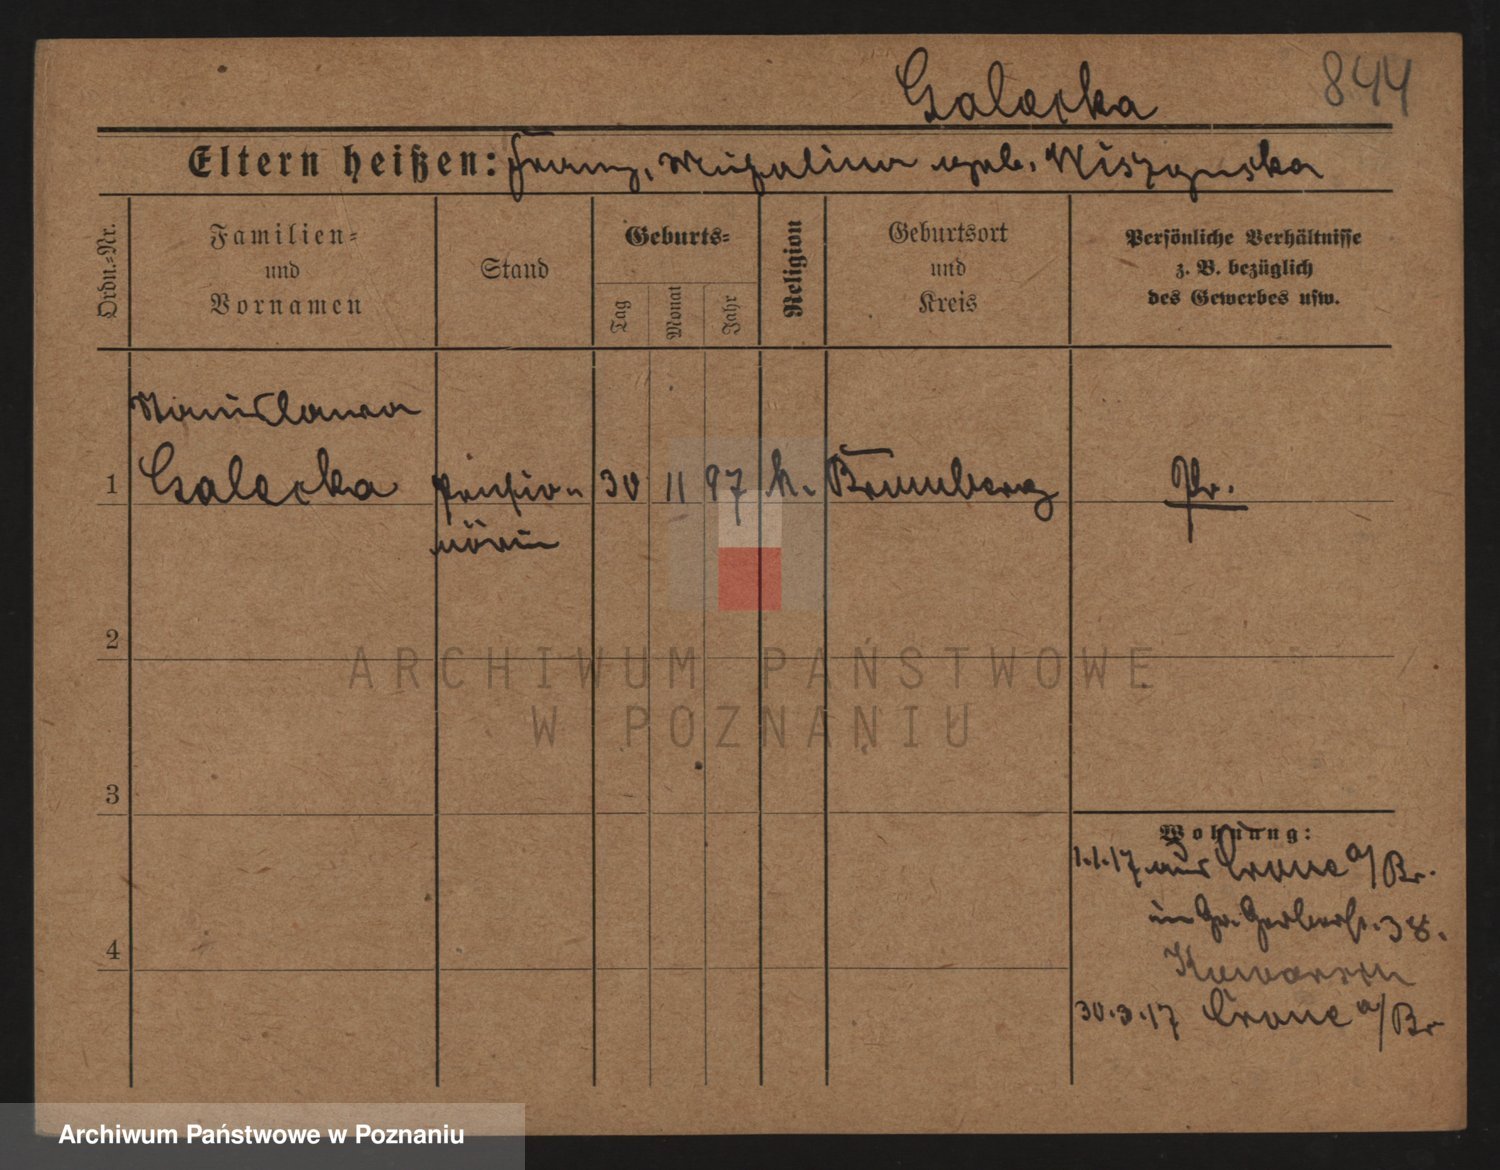 Galecka 844
Eltern heißen: Franz, Michalina geb. Wiszynska
Ordn.-Nr.
Familien-
und
Vornamen
Stand
Geburts-
Tag
Monat
Jahr
Religion
Geburtsort
und
Kreis
Persönliche Verhältnisse
z. B. bezüglich
des Gewerbes usw.
Stanislawa
1 Galecka Pensio- 30 11 97 k. Bromberg Pr.
närin
2
3
4
Wohnung:
1.1.17 aus Crone a/Br.
in Gr. Gerberstr. 38.
30.3.17 Crone a/Br
ARCHIWUM PAŃSTWOWE
W POZNANIU
Archiwum Państwowe w Poznaniu